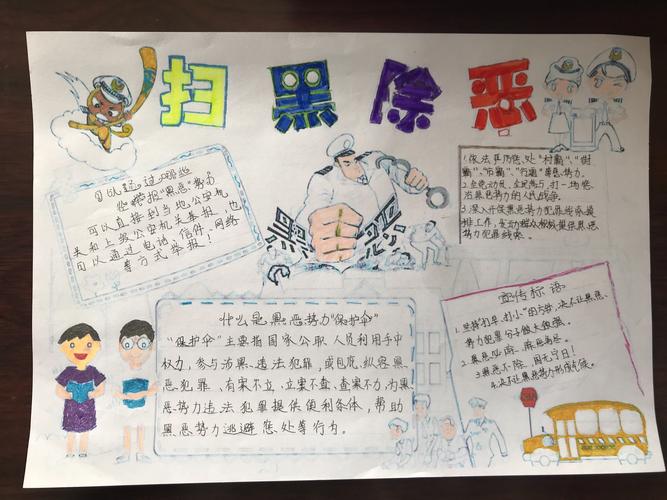 扫黑除恶
可以通过哪些
举报"黑恶"势力
可以直接到当地公安机
关和上级公安机关举报,也
可以通过电话、信件、网络
等方式举报!
1.依法严厉惩处"村霸"、"街
霸"、"市霸"、"行霸"等恶势力。
2.全党动员、全民参与,打一场惩
治黑恶势力的人民战争。
3.深入开展黑恶势力犯罪线索摸
排工作,发动群众积极提供黑恶
势力犯罪线索。
什么是黑恶势力"保护伞"
"保护伞"主要指国家公职人员利用手中
权力,参与涉黑违法犯罪,或包庇、纵容黑
恶犯罪、有案不立、立案不查、查案不力,为黑
恶势力违法犯罪提供便利条件,帮助
黑恶势力逃避惩处等行为。
宣传标语
1.坚持"打早、打小"的方针,决不让黑恶
势力犯罪分子做大做强。
2.黑恶必除,除恶务尽。
3.黑恶不除,国无宁日!
4.决不让黑恶势力形成气候。